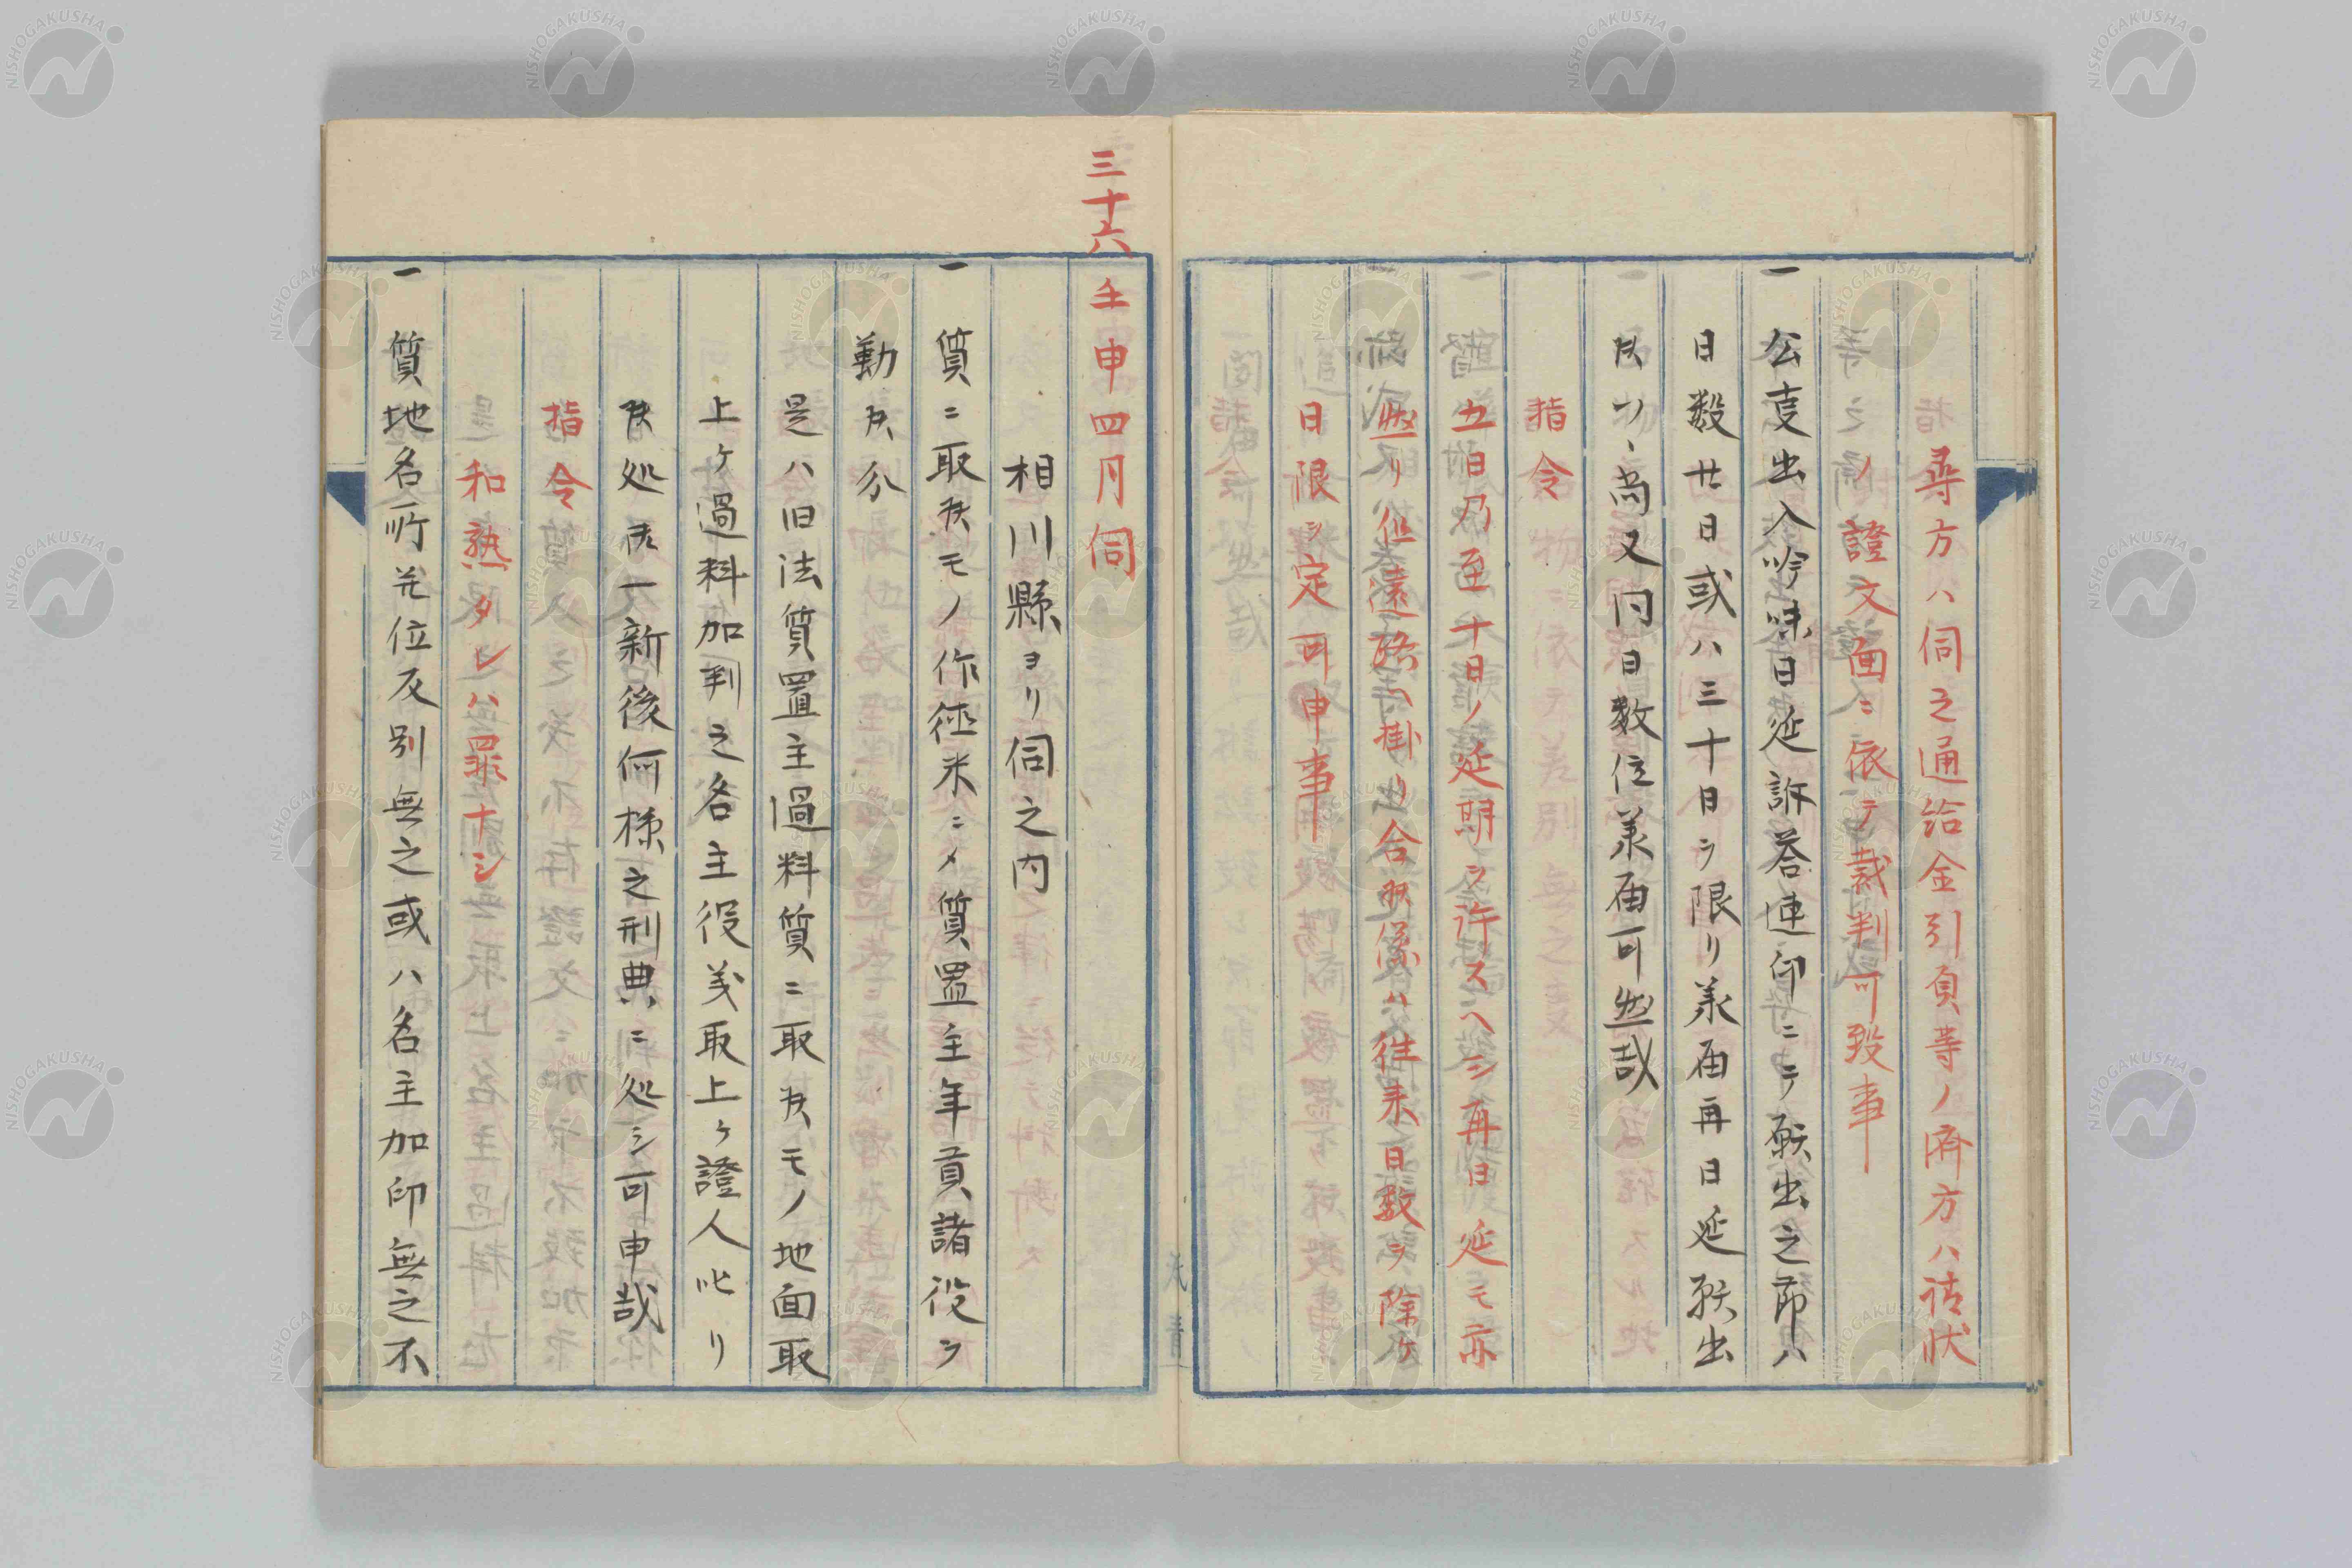 尋方ハ伺之通給金引負等ノ済方ハ請状
ノ證文面ニ依テ裁判可致事
一 公事出入吟味日延訴答連印ニテ願出之節ハ
日数廿日或ハ三十日ヲ限リ承届再日延願出
候ハヽ尚又同日数位承届可然哉
指令
五日乃至十日ノ延期ヲ許スヘシ再日延モ亦
然リ但遠路ヘ掛リ合候係ハ往来日数ヲ除ケ
日限ヲ定可申事
三十六 壬申四月伺
相川縣ヨリ伺之内
一 質ニ取候モノ作徳米ニ〆質置主年貢諸役ヲ
勤候分
是ハ旧法質置主過料質ニ取候モノ地面取
上ケ過料加判之名主役義取上ケ證人叱リ
候処御一新後何様之刑典ニ処シ可申哉
指令
和熟タレハ罪ナシ
一 質地名所並位反別無之或ハ名主加印無之不
NISHOGAKUSHA